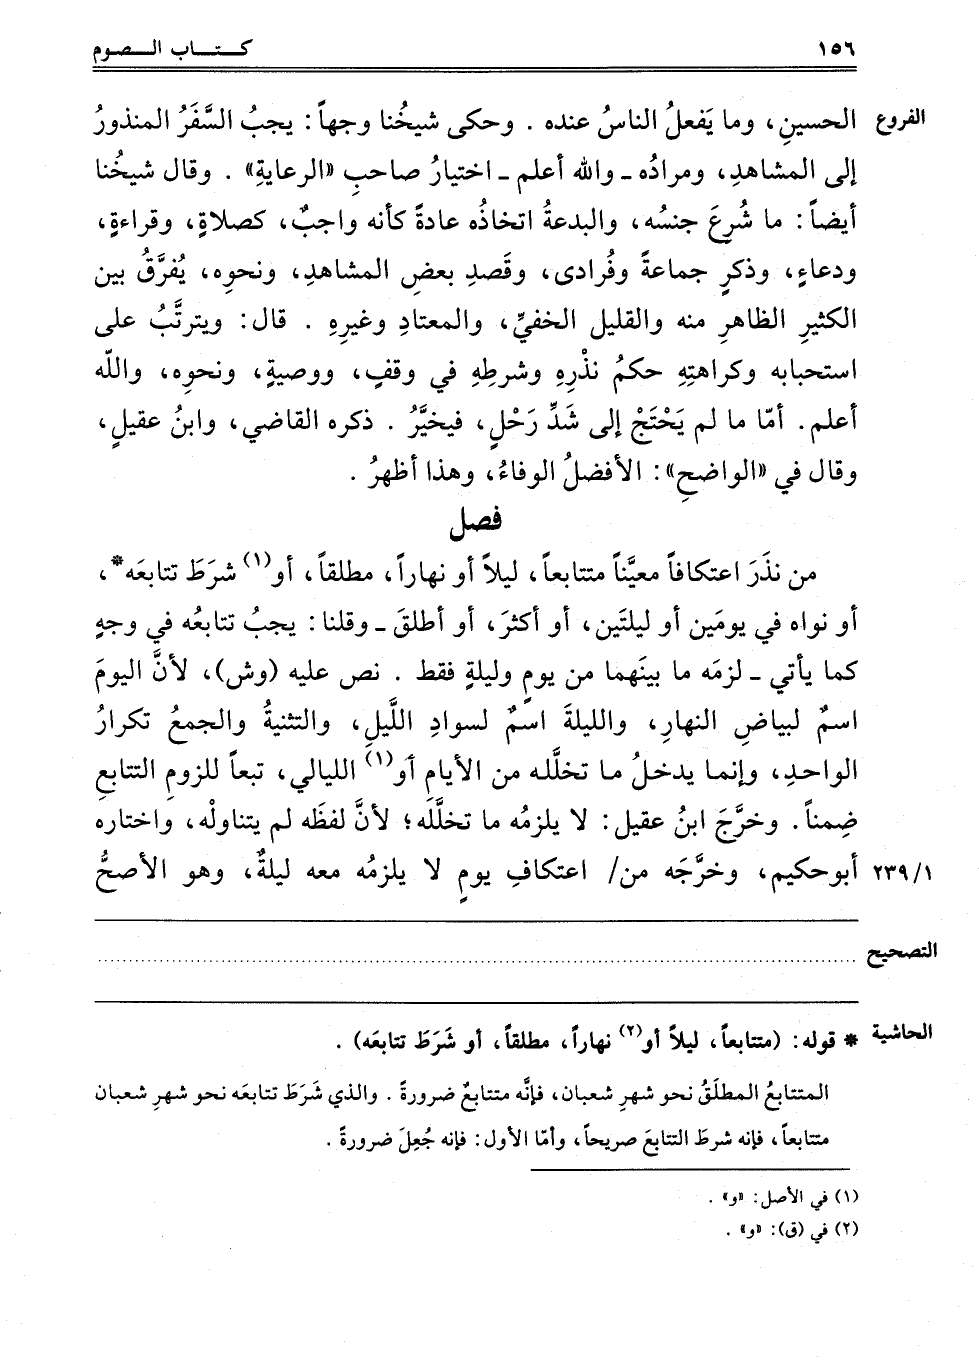 ١٥٦ كـتـاب الـصـوم
الفروع الحسينِ، وما يَفعلُ الناسُ عنده . وحكى شيخُنا وجهاً: يجبُ السَّفَرُ المنذورُ
إلى المشاهدِ، ومرادُه ـ والله أعلم ـ اختيارُ صاحبِ «الرعايةِ» . وقال شيخُنا
أيضاً: ما شُرِعَ جنسُه، والبدعةُ اتخاذُه عادةً كأنه واجبٌ، كصلاةٍ، وقراءةٍ،
ودعاءٍ، وذكرٍ جماعةً وفُرادى، وقَصدِ بعضِ المشاهدِ، ونحوِه، يُفرَّقُ بين
الكثيرِ الظاهرِ منه والقليلِ الخفيِّ، والمعتادِ وغيرِهِ . قال: ويترتَّبُ على
استحبابه وكراهتِهِ حكمُ نذْرِهِ وشرطِهِ في وقفٍ، ووصيةٍ، ونحوِه، والله
أعلم. أمّا ما لم يَحْتَجْ إلى شَدِّ رَحْلٍ، فيخيَّرُ . ذكره القاضي، وابنُ عقيلٍ،
وقال في «الواضحِ»: الأفضلُ الوفاءُ، وهذا أظهرُ .
فصل
من نذَرَ اعتكافاً معيَّناً متتابعاً، ليلاً أو نهاراً، مطلقاً، أو(١) شرَطَ تتابعَه*،
أو نواه في يومَين أو ليلتَين، أو أكثرَ، أو أطلقَ ـ وقلنا: يجبُ تتابعُه في وجهٍ
كما يأتي ـ لزمَه ما بينَهما من يومٍ وليلةٍ فقط . نص عليه (وش)، لأنَّ اليومَ
اسمٌ لبياضِ النهارِ، والليلةَ اسمٌ لسوادِ اللَّيلِ، والتثنيةُ والجمعُ تكرارُ
الواحدِ، وإنما يدخلُ ما تخلَّله من الأيامِ أو(١) الليالي، تبعاً للزومِ التتابعِ
ضِمناً. وخرَّجَ ابنُ عقيل: لا يلزمُه ما تخلَّلَه؛ لأنَّ لفظَه لم يتناولْه، واختاره
٢٣٩/١ أبوحكيم، وخرَّجَه من/ اعتكافِ يومٍ لا يلزمُه معه ليلةٌ، وهو الأصحُّ
التصحيح ........................................
الحاشية * قوله: (متتابعاً، ليلاً أو(٢) نهاراً، مطلقاً، أو شَرَطَ تتابعَه) .
المتتابعُ المطلَقُ نحو شهرِ شعبان، فإنَّه متتابعٌ ضرورةً . والذي شَرَطَ تتابعَه نحو شهرِ شعبان
متتابعاً، فإنه شرطَ التتابعَ صريحاً، وأمّا الأول: فإنه جُعِلَ ضرورةً .
(١) في الأصل: «و» .
(٢) في (ق): «و» .